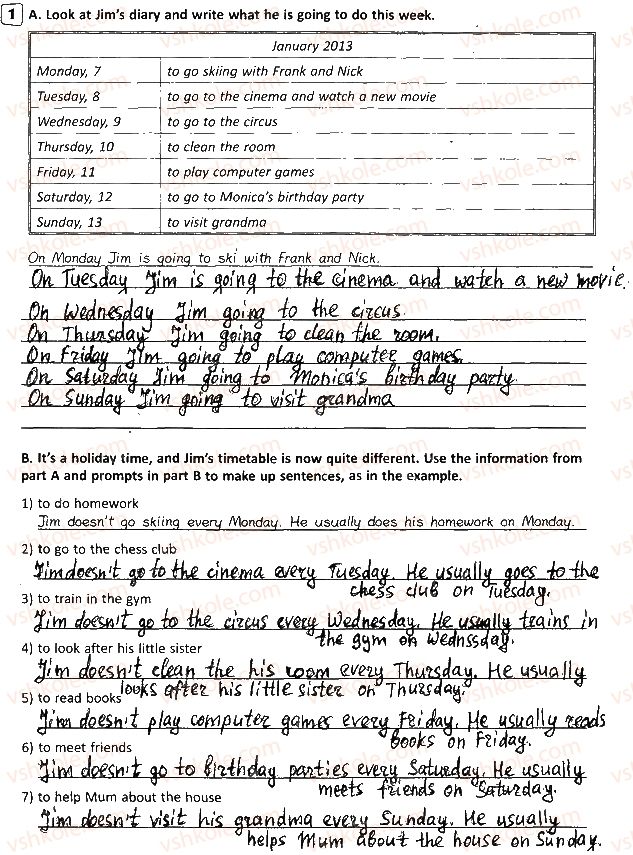 1 A. Look at Jim's diary and write what he is going to do this week.
January 2013
Monday, 7 to go skiing with Frank and Nick
Tuesday, 8 to go to the cinema and watch a new movie
Wednesday, 9 to go to the circus
Thursday, 10 to clean the room
Friday, 11 to play computer games
Saturday, 12 to go to Monica's birthday party
Sunday, 13 to visit grandma
On Monday Jim is going to ski with Frank and Nick.
On Tuesday Jim is going to the cinema and watch a new movie.
On Wednesday Jim going to the circus
On Thursday Jim going to clean the room.
On Friday Jim going to play computer games.
On Saturday Jim going to Monica's birthday party
On Sunday Jim going to visit grandma
B. It's a holiday time, and Jim's timetable is now quite different. Use the information from
part A and prompts in part B to make up sentences, as in the example.
1) to do homework
Jim doesn't go skiing every Monday. He usually does his homework on Monday.
2) to go to the chess club
Jim doesn't go to the cinema every Tuesday. He usually goes to the
chess club on Tuesday.
3) to train in the gym
Jim doesn't go to the circus every Wednesday. He usually trains in
the gym on Wednssday.
4) to look after his little sister
Jim doesn't clean the his room every Thursday. He usually
looks after his little sister on Thursday.
5) to read books
Jim doesn't play computer games every Friday. He usually reads
books on Friday.
6) to meet friends
Jim doesn't go to birthday parties every Saturday. He usually
meets friends on Saturday.
7) to help Mum about the house
Jim doesn't visit his grandma every Sunday. He usually
helps Mum about the house on Sunday.
vshkole.com